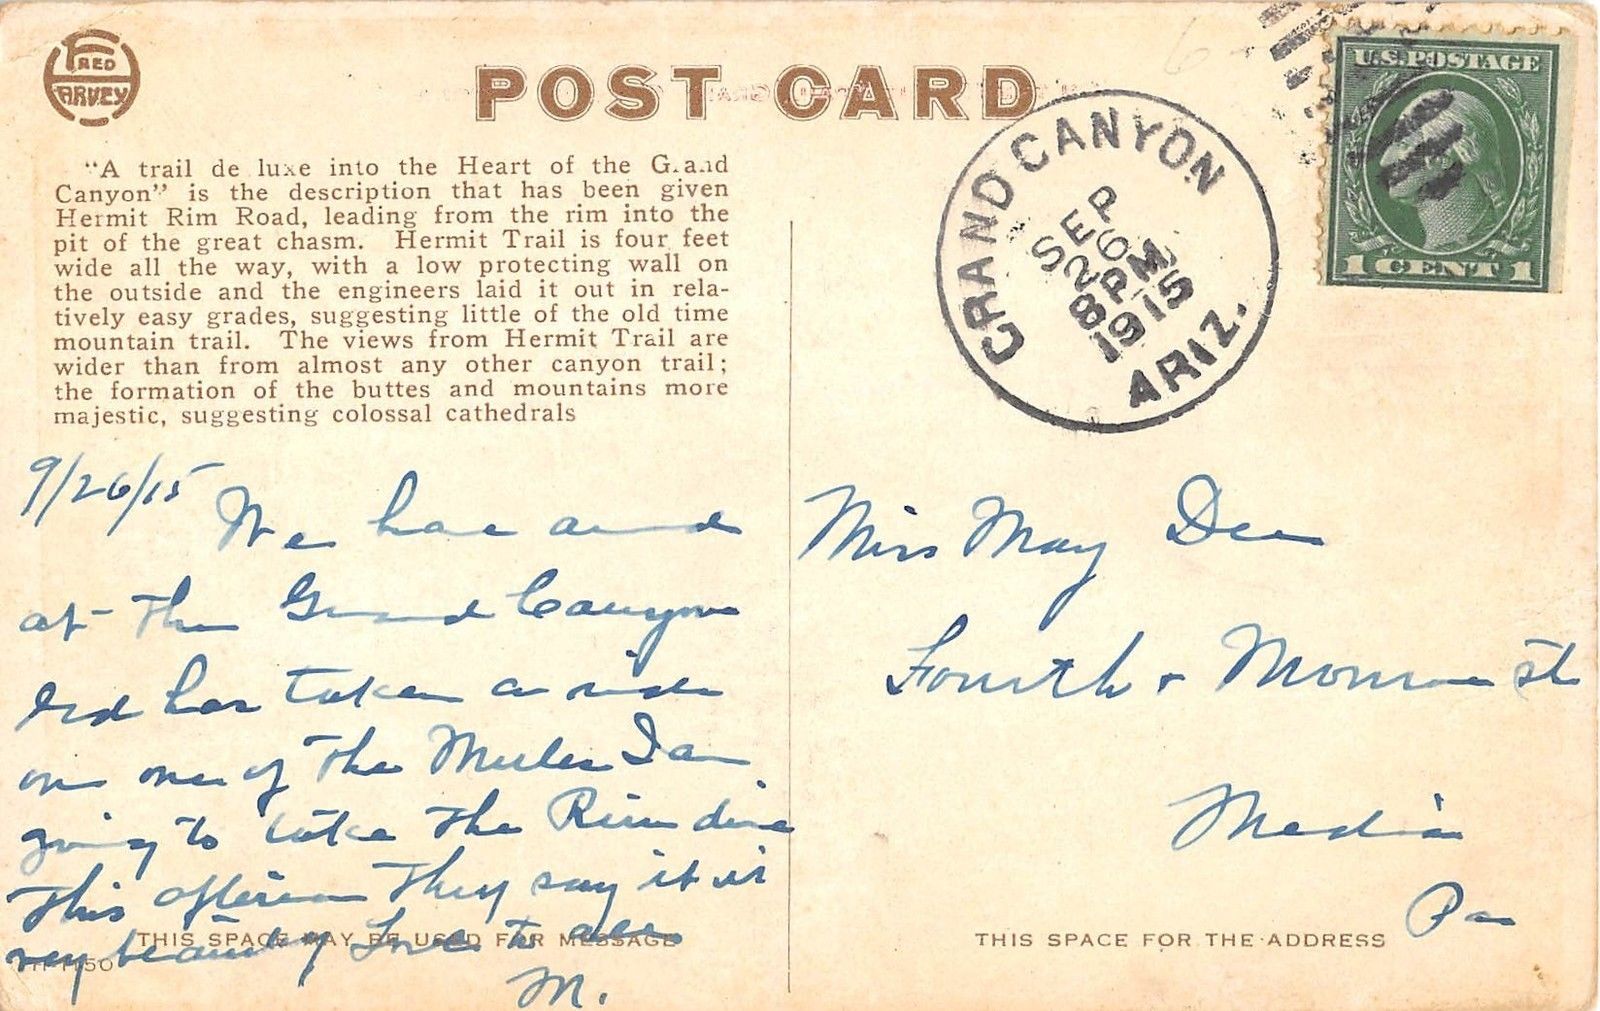 FRED
HARVEY
POST CARD
"A trail de luxe into the Heart of the Grand
Canyon" is the description that has been given
Hermit Rim Road, leading from the rim into the
pit of the great chasm. Hermit Trail is four feet
wide all the way, with a low protecting wall on
the outside and the engineers laid it out in rela-
tively easy grades, suggesting little of the old time
mountain trail. The views from Hermit Trail are
wider than from almost any other canyon trail;
the formation of the buttes and mountains more
majestic, suggesting colossal cathedrals
9/26/15
We have
at the Grand Canyon
has taken a ride
on one of the Mules I am
going to take the Rim drive
This afternoon They say it is
very beautiful Love to all
M.
THIS SPACE MAY BE USED FOR MESSAGE
GRAND CANYON
SEP
26
8 PM
1915
ARIZ.
U.S. POSTAGE
1 CENT 1
Miss May Dee
Fourth & Monroe St
Media
Pa
THIS SPACE FOR THE ADDRESS